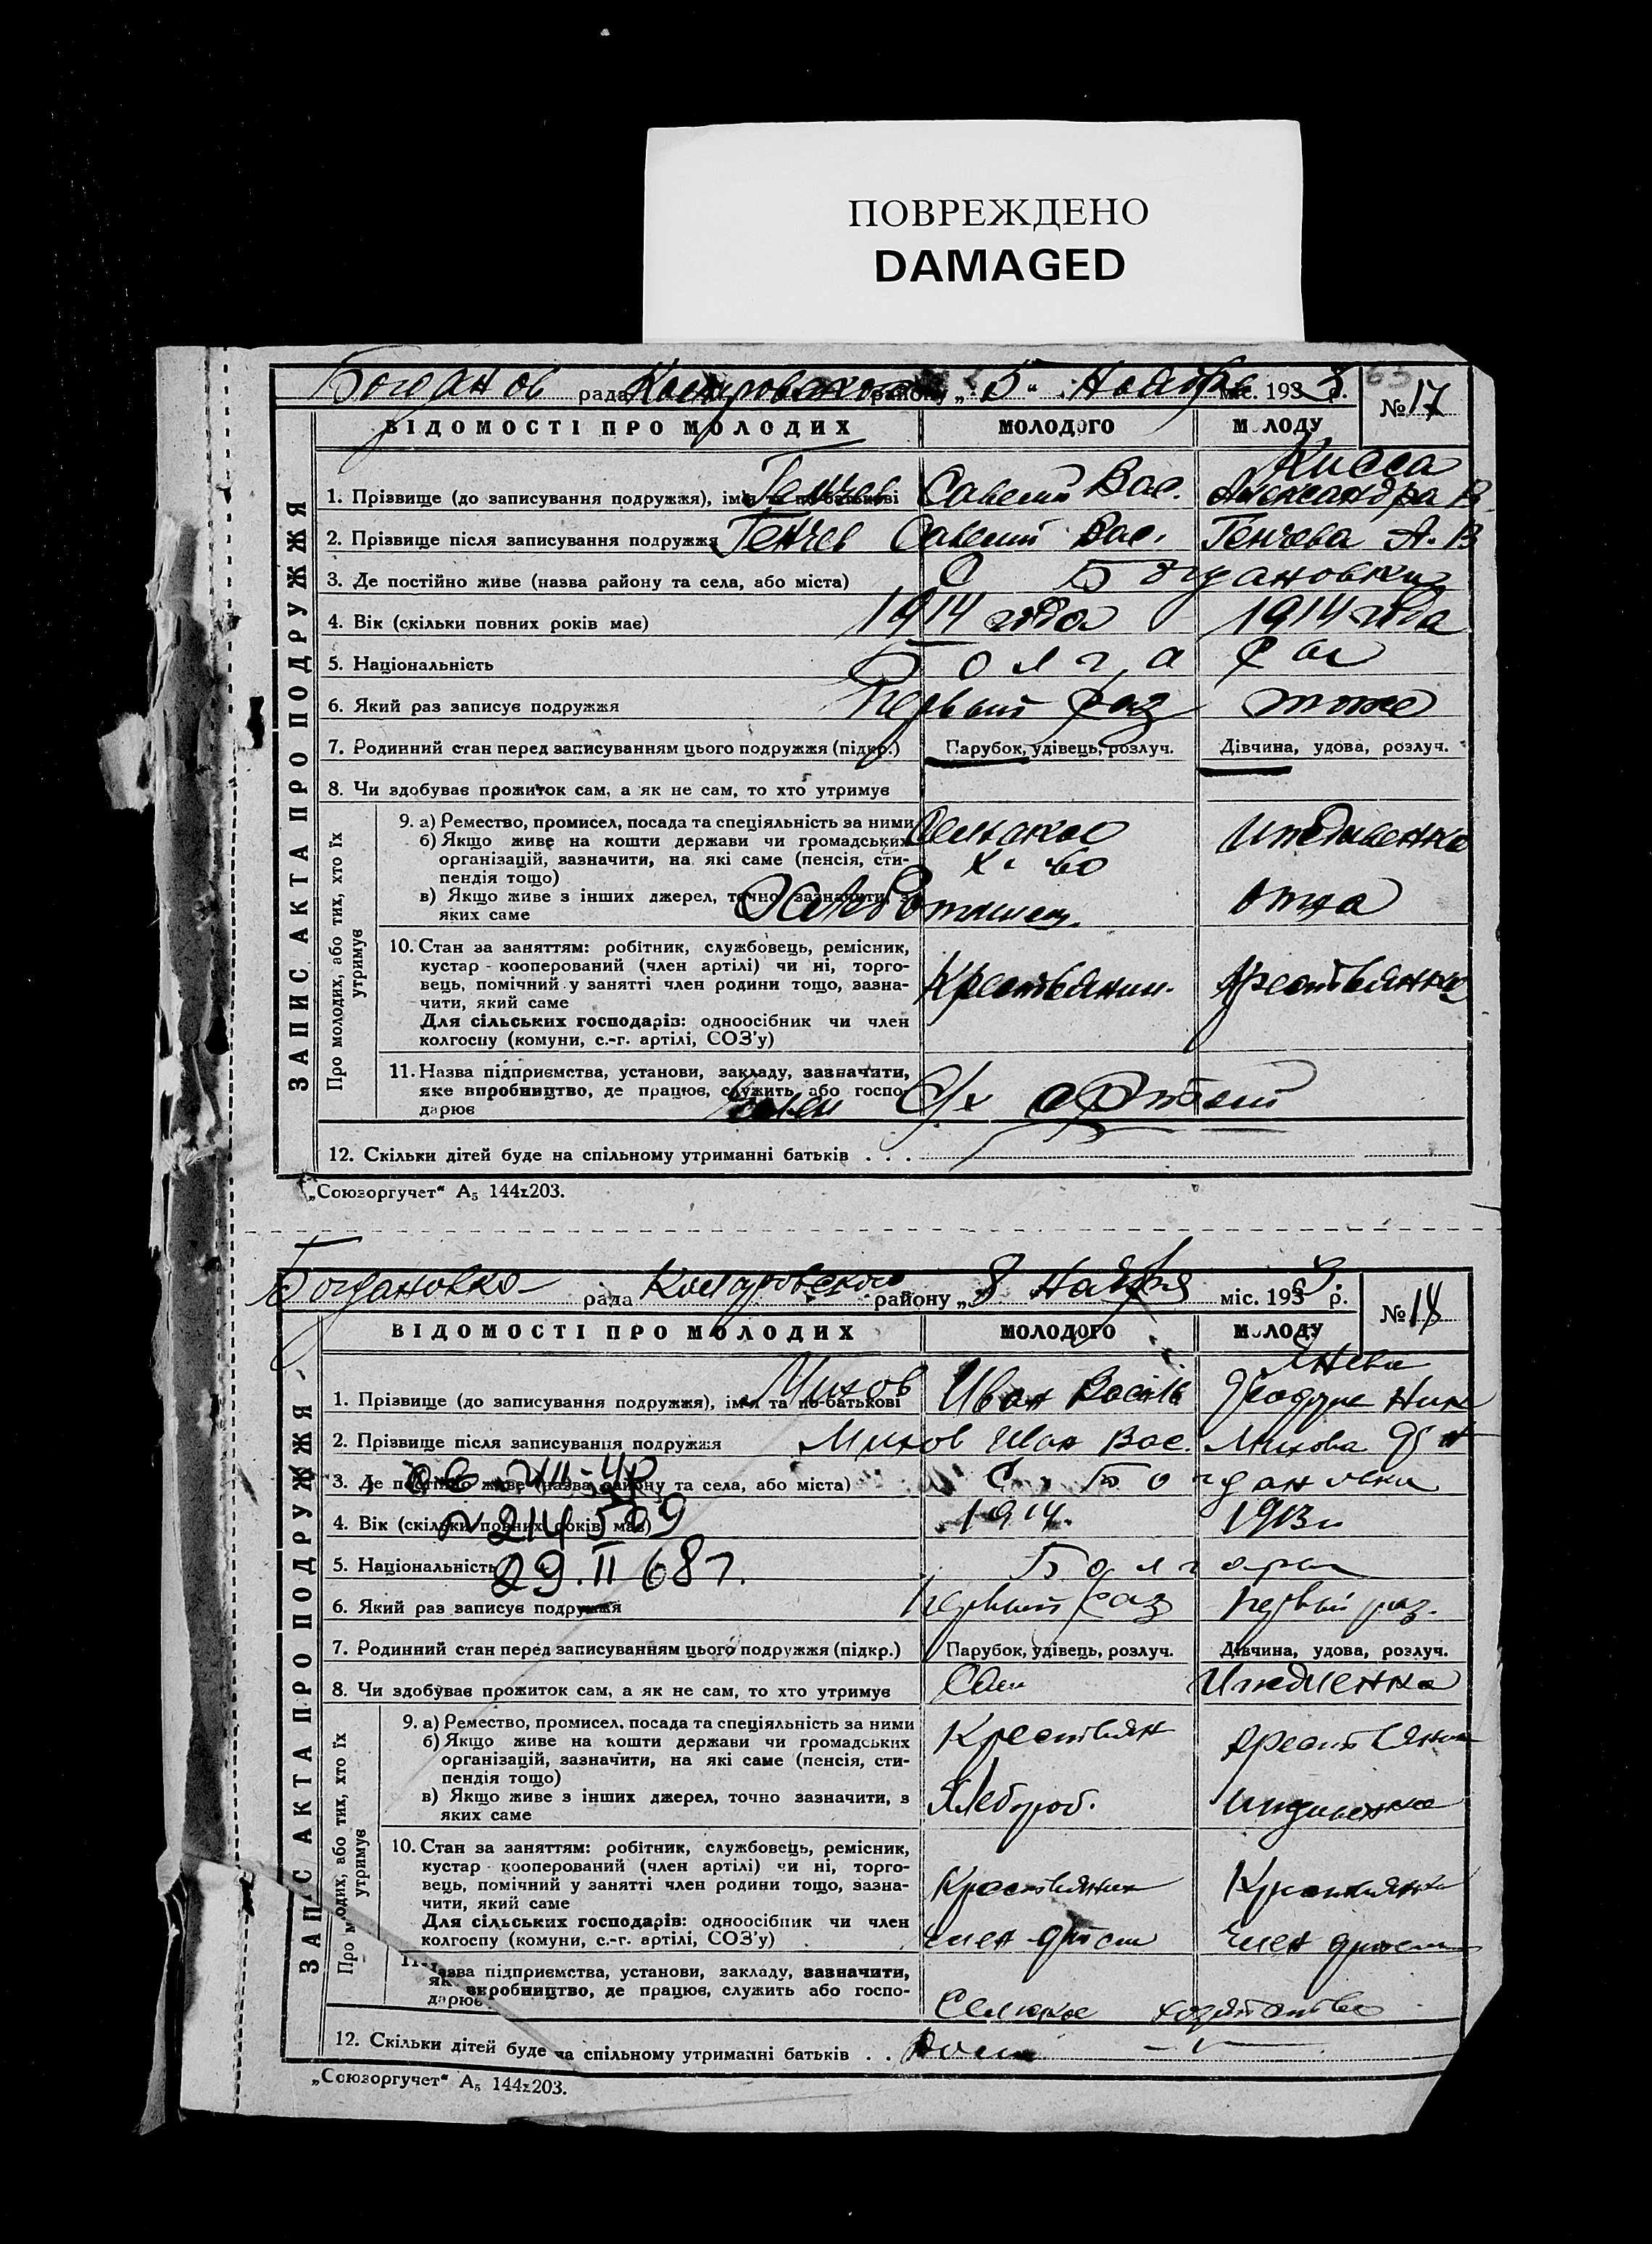 ПОВРЕЖДЕНО
DAMAGED
63
Богданов рада району „ 5 “ Ноября міс. 193 3 р. № 17
ВІДОМОСТІ ПРО МОЛОДИХ МОЛОДОГО МОЛОДУ
ЗАПИС АКТА ПРО ПОДРУЖЖЯ
1. Прізвище (до записування подружжя), ім'я та по-батькові Генчев Савелий Вас. Александра В
2. Прізвище після записування подружжя Генчев Савелий Вас. Генчева А. В
3. Де постійно живе (назва району та села, або міста) С Богдановки
4. Вік (скільки повних років має) 1914 года 1914 года
5. Національність Болгары
6. Який раз записує подружжя Первый раз тоже
7. Родинний стан перед записуванням цього подружжя (підкр.) Парубок, удівець, розлуч. Дівчина, удова, розлуч.
8. Чи здобуває прожиток сам, а як не сам, то хто утримує
Про молодих, або тих, хто їх утримує
9. а) Ремество, промисел, посада та спеціяльність за ними
б) Якщо живе на кошти держави чи громадських
організацій, зазначити, на які саме (пенсія, сти-
пендія тощо)
в) Якщо живе з інших джерел, точно зазначити, з
яких саме
Сельское
х-во
Иждивенка
отца
10. Стан за заняттям: робітник, службовець, ремісник,
кустар-кооперований (член артілі) чи ні, торго-
вець, помічний у занятті член родини тощо, зазна-
чити, який саме
Для сільських господарів: одноосібник чи член
колгоспу (комуни, с.-г. артілі, СОЗ'у)
Крестьянин. Крестьянка
11. Назва підприємства, установи, закладу, зазначити,
яке виробництво, де працює, служить або госпо-
дарює
член С/х артели
12. Скільки дітей буде на спільному утриманні батьків . . .
„Союзоргучет“ А₅ 144х203.
Богдановка рада району „ 8 Ноября міс. 193 3. р. № 18
ВІДОМОСТІ ПРО МОЛОДИХ МОЛОДОГО МОЛОДУ
ЗАПИС АКТА ПРО ПОДРУЖЖЯ
Янева
1. Прізвище (до записування подружжя), ім'я та по-батькові Михов Иван Василь Ник
2. Прізвище після записування подружжя Михов Иван Вас. Михова
3. Де постійно живе (назва району та села, або міста) С. Богдановки
4. Вік (скільки повних років має) 1914. 1913 г
№ 214509
5. Національність Болгары
29. II 68 г.
6. Який раз записує подружжя Первый раз Первый раз.
7. Родинний стан перед записуванням цього подружжя (підкр.) Парубок, удівець, розлуч. Дівчина, удова, розлуч.
8. Чи здобуває прожиток сам, а як не сам, то хто утримує Сам Иждивенка
Про молодих, або тих, хто їх утримує
9. а) Ремество, промисел, посада та спеціяльність за ними
б) Якщо живе на кошти держави чи громадських
організацій, зазначити, на які саме (пенсія, сти-
пендія тощо)
в) Якщо живе з інших джерел, точно зазначити, з
яких саме
Крестьян
Хлебороб. иждивенка
10. Стан за заняттям: робітник, службовець, ремісник,
кустар-кооперований (член артілі) чи ні, торго-
вець, помічний у занятті член родини тощо, зазна-
чити, який саме
Для сільських господарів: одноосібник чи член
колгоспу (комуни, с.-г. артілі, СОЗ'у)
Крестьянин Крестьянка
член член
11. Назва підприємства, установи, закладу, зазначити,
яке виробництво, де працює, служить або госпо-
дарює
Сельское
12. Скільки дітей буде на спільному утриманні батьків . .
„Союзоргучет“ А₅ 144х203.